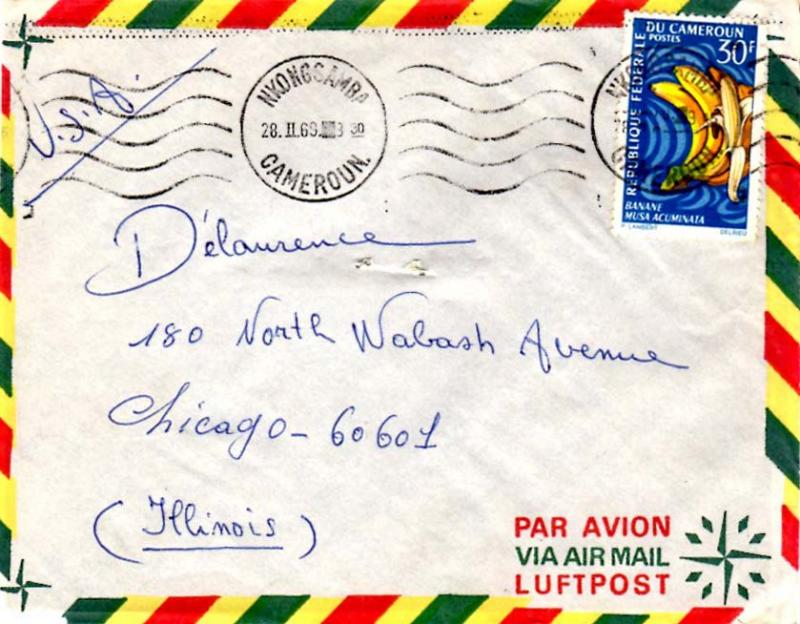 U.S.A.
NKONGSAMBA
28. II.69. 3 30
CAMEROUN.
REPUBLIQUE FEDERALE
DU CAMEROUN
POSTES
30F
BANANE
MUSA ACUMINATA
P. LAMBERT
DELRIEU
Délaurence
180 North Wabash Avenue
Chicago - 60601
(Illinois)
PAR AVION
VIA AIR MAIL
LUFTPOST